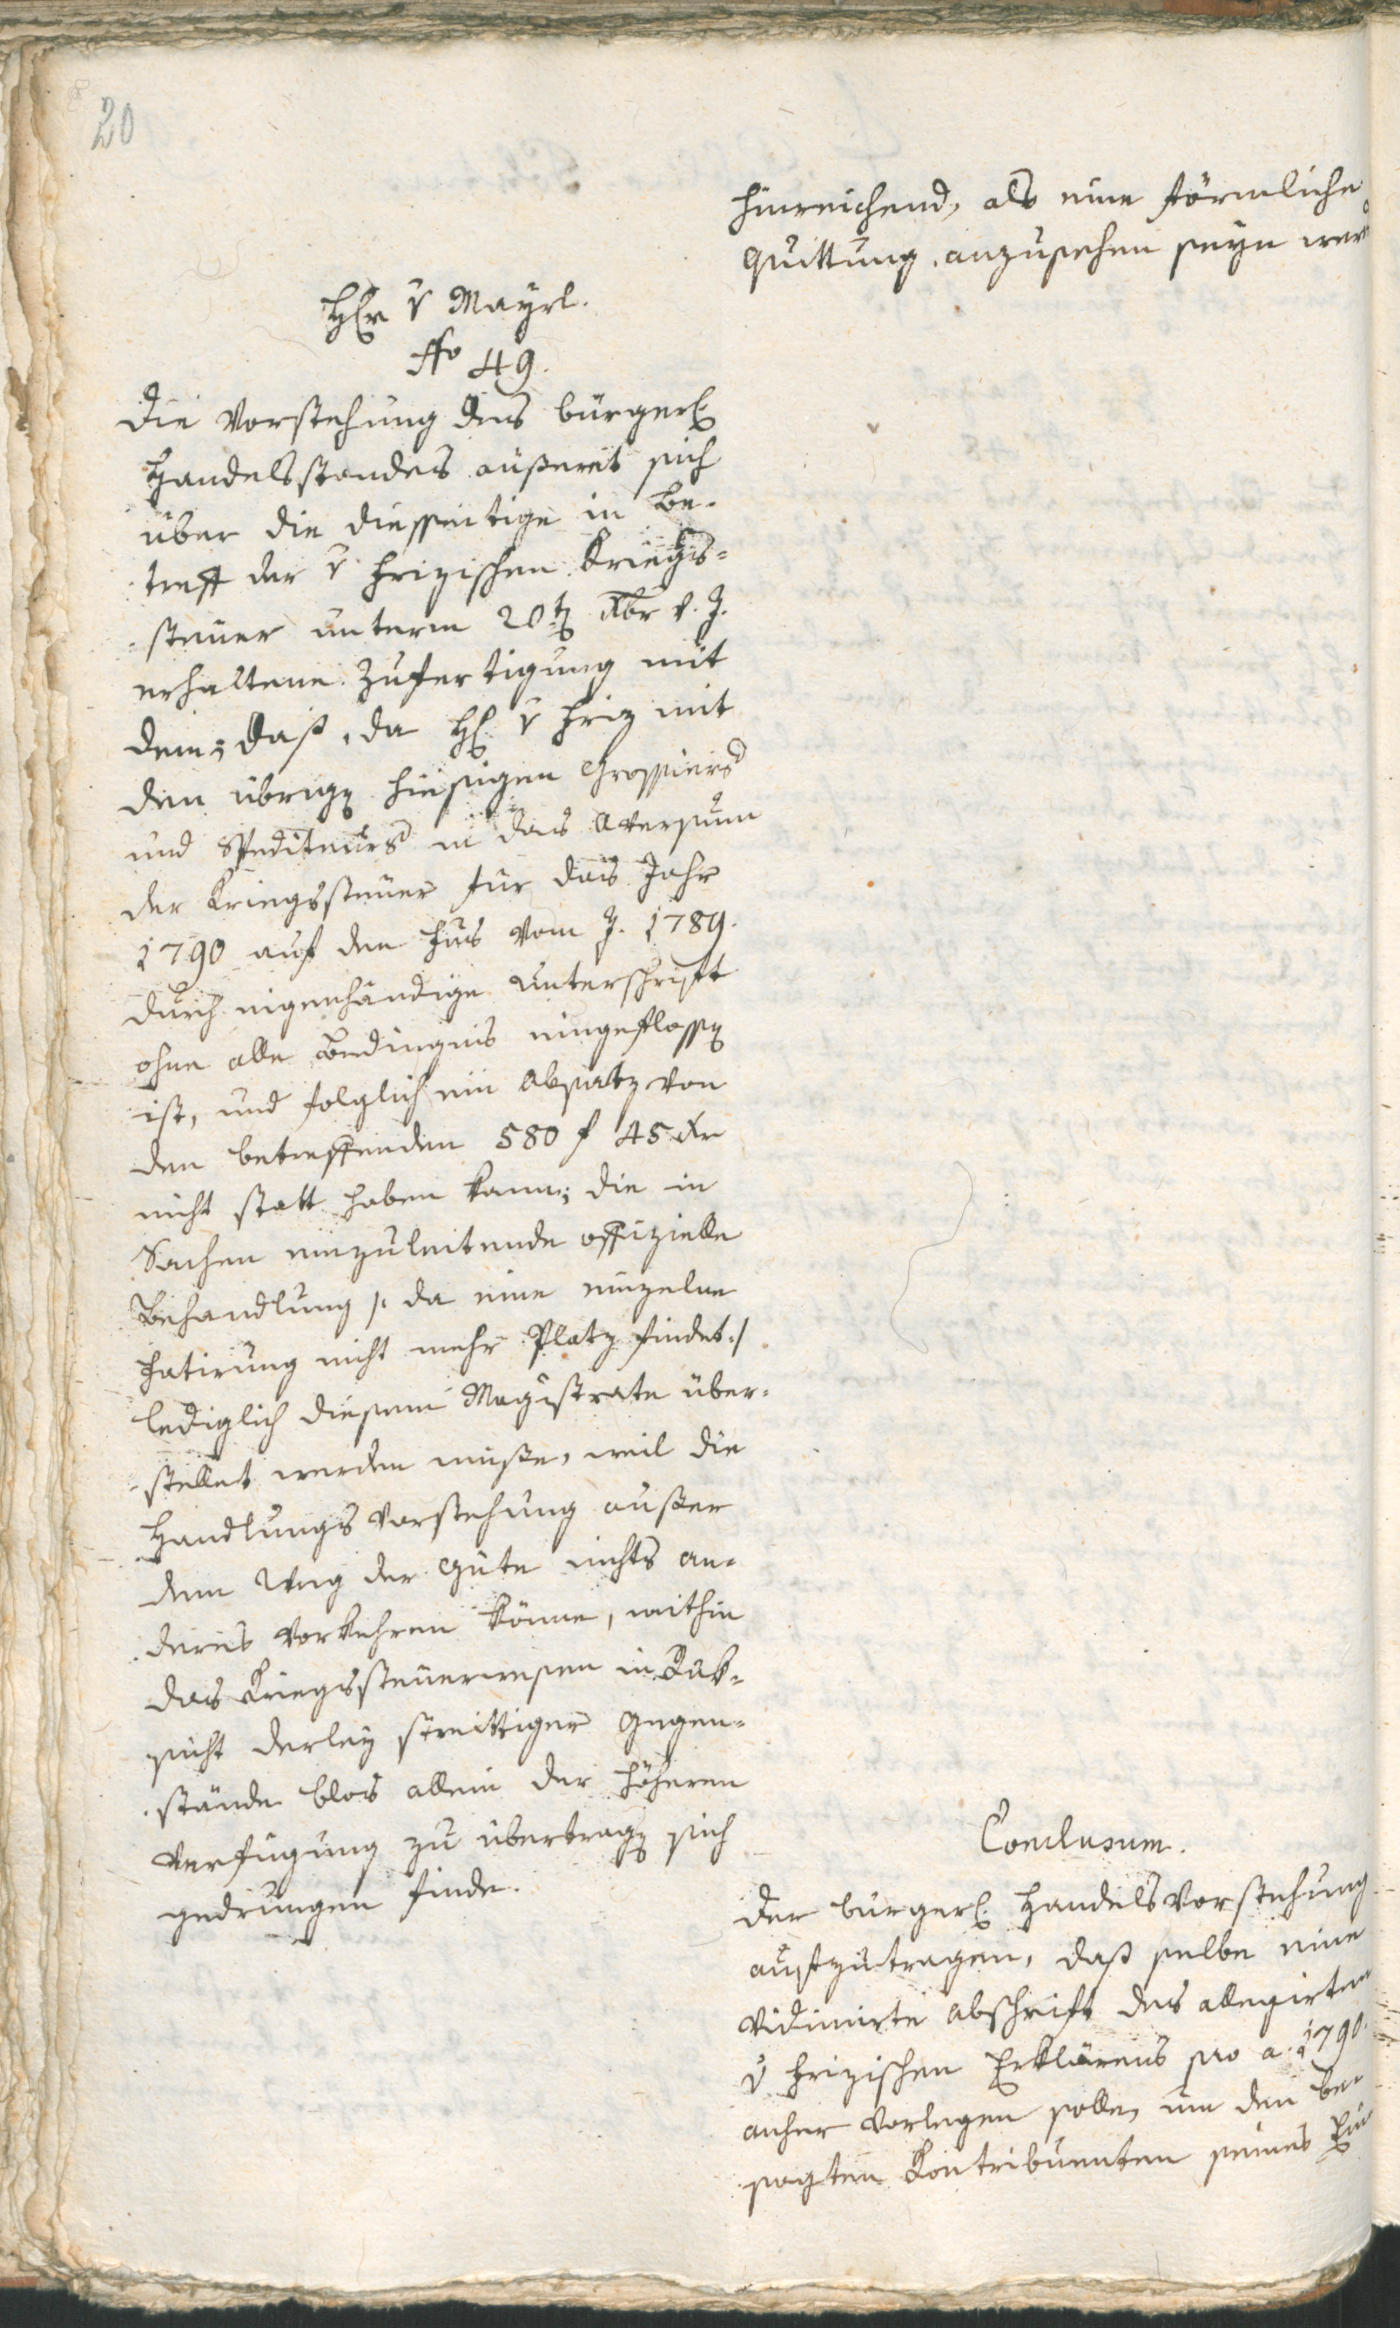 20
hinreichend, als eine förmliche
Quittung anzusehen seyn werd
Hr v Mayrl.
No 49.
Die Vorstehung des bürgerl
Handelsstandes äußeret sich
über die diesseitige in Be-
treff der v Frizischen Kriegs-
steuer unterm 20t Xbr v. J.
erhaltene Zufertigung mit
deme; daß, da H v Friz mit
den übrig hiesigen Grossiers
und Spediteurs in das Aversum
der Kriegssteuer für das Jahr
1790 auf den Fus vom J. 1789.
durch eigenhändige Unterschrift
ohne alle Bedingnis eingeflossen
ist, und folglich ein Absatz von
den betreffenden 580 f 45 Xr
nicht statt haben kann; die in
Sachen einzuleitende offizielle
Behandlung /: da eine einzelne
Fatirung nicht mehr Platz findet :/
lediglich diesem Magistrate über-
stellet werden müße, weil die
Handlungs Vorstehung außer
dem Weg der Güte nichts an-
deres vorkehren könne, mithin
das Kriegssteuerwesen in Rük-
sicht derley streittiger Gegen-
stände blos allein der höheren
Verfügung zu übertragen sich
gedrungen finde.
Conclusum.
Der bürgerl. Handelsvorstehung
aufzutragen, daß selbe eine
vidimirte Abschrift des allegirten
v Frizischen Erklärens pro a. 1790.
anher vorlegen solle, um den be-
sagten Kontribuenten seines Ein